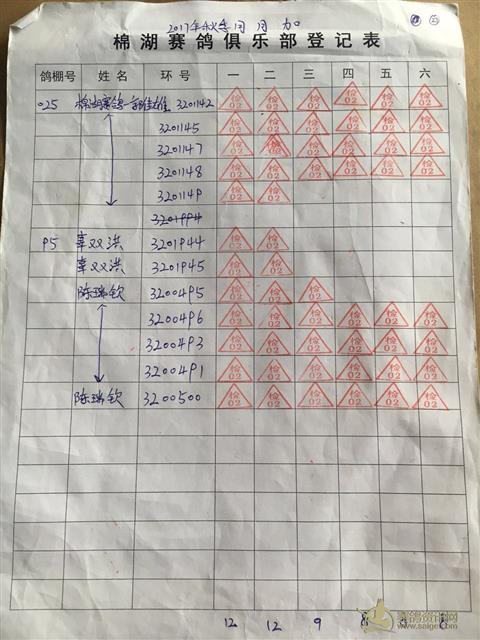 2017年秋
棉湖赛鸽俱乐部登记表
鸽棚号 姓名 环号 一 二 三 四 五 六
025 棉湖赛鸽 3201142 检02 检02 检02 检02 检02 检02
3201145 检02 检02 检02 检02 检02 检02
3201147 检02 检02 检02 检02 检02 检02
3201148 检02 检02 检02 检02 检02 检02
3201149 检02 检02
3201994
95 辜双洪 3201944 检02 检02
辜双洪 3201945 检02 检02
陈瑞钦 3200495 检02 检02 检02
3200496 检02 检02 检02 检02 检02 检02
3200493 检02 检02 检02 检02 检02 检02
3200491 检02 检02 检02 检02 检02 检02
陈瑞钦 3200500 检02 检02 检02 检02 检02 检02
12 12 9 8
赛鸽资讯网
www.saige.com